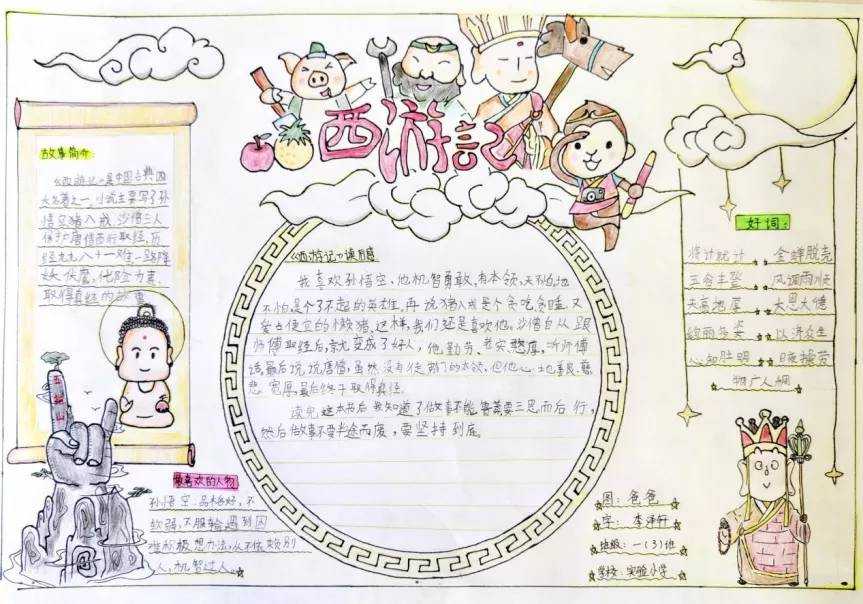 西游記
故事简介:
《西游记》是中国古典四
大名著之一,小说主要写了孙
悟空猪八戒,沙僧三人
保护唐僧西行取经,历
经九九八十一难,一路降
妖伏魔,化险为夷,
取得真经的故事
五指山
最喜欢的人物
孙悟空:品格好,不
软弱,不服输遇到困
难积极想办法,从不依赖别
人,机智过人。
《西游记》读后感
我喜欢孙悟空,他机智勇敢,有本领,天不怕地
不怕,是个了不起的英雄,再说猪八戒是个贪吃,贪睡,又
爱占便宜的懒猪,这样,我们还是喜欢他。沙僧自从跟
师傅取经后,就变成了好人,他勤劳、老实憨厚,听师傅
话,最后说说唐僧,虽然没有徒弟们的本领,但他心地善良、慈
悲宽厚,最后终于取得真经。
读完这本书后,我知道了做事不能鲁莽要三思而后行,
然后做事不要半途而废,要坚持到底。
好词:
将计就计 金蝉脱壳
五谷丰登 风调雨顺
天高地厚 大恩大德
以济众生
心知肚明 日晚操劳
物广人稠
图:爸爸
字:李泽轩
班级:一(3)班
学校:实验小学